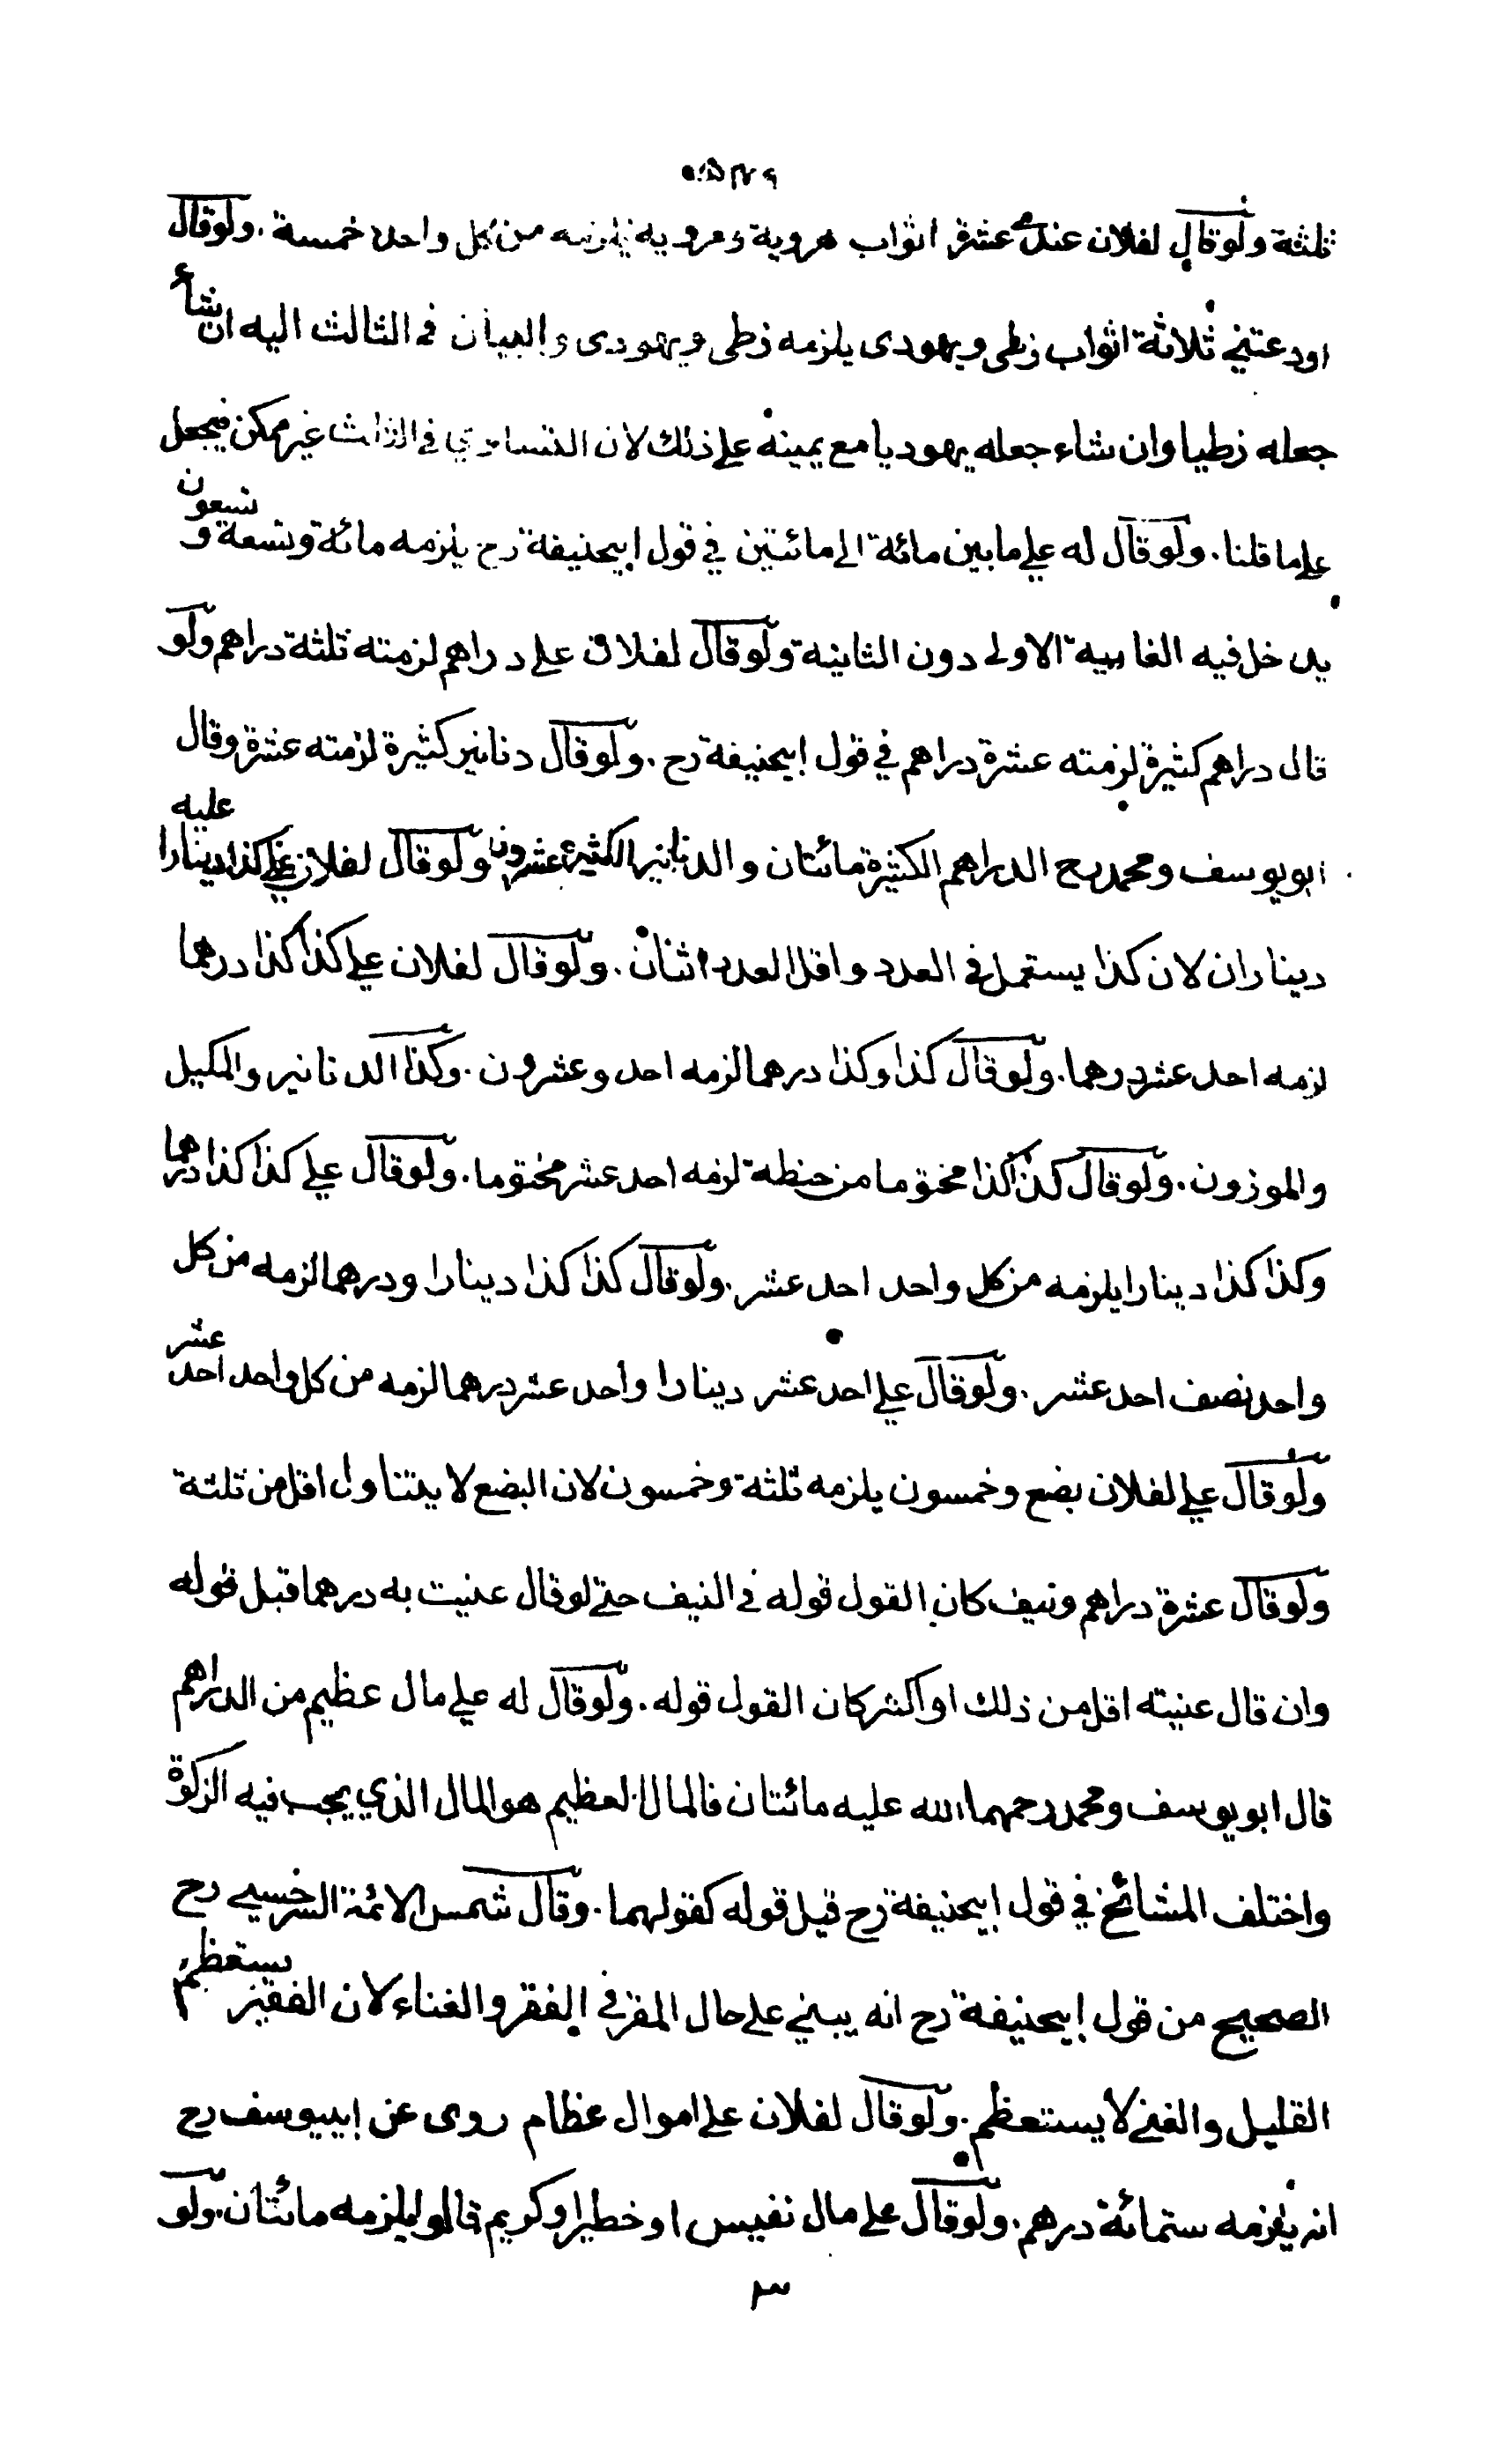 ثلثة ولو قال لفلان عندي عشرة اثواب هروية ومروية يلزمه من كل واحد خمسة . ولو قال
اودعتني ثلاثة اثواب زطى ويهودى يلزمه زطى ويهودى والبيان فى الثالث اليه ان شاء
جعله زطيا وان شاء جعله يهوديا مع يمينه على ذلك لان التساوي في الثالث غير ممكن فيجعل
على ما قلنا . ولو قال له علي ما بين مائة الى مائتين في قول ابيحنيفة رح يلزمه مائة وتسعة و تسعون
يدخل فيه الغاية الاولى دون الثانية ولو قال لفلان على دراهم لزمته ثلثة دراهم ولو
قال دراهم كثيرة لزمته عشرة دراهم في قول ابيحنيفة رح . ولو قال دنانير كثيرة لزمته عشرة وقال
ابو يوسف ومحمد رح الدراهم الكثيرة مائتان والدنانير الكثيرة عشرون ولو قال لفلان علي كذا دينارا عليه
ديناران لان كذا يستعمل في العدد واقل العدد اثنان . ولو قال لفلان علي كذا كذا درهما
لزمه احد عشر درهما . ولو قال كذا وكذا درهما لزمه احد وعشرون . وكذا الدنانير والمكيل
والموزون . ولو قال كذا كذا مختوما من حنطة لزمه احد عشر مختوما . ولو قال علي كذا كذا درهما
وكذا كذا دينارا يلزمه من كل واحد احد عشر . ولو قال كذا كذا دينارا ودرهما لزمه من كل
واحد نصف احد عشر . ولو قال علي احد عشر دينارا واحد عشر درهما لزمه من كل واحد احد عشر
ولو قال علي لفلان بضع وخمسون يلزمه ثلثة وخمسون لان البضع لا يتناول اقل من ثلثة
ولو قال عشرة دراهم ونيف كان القول قوله فى النيف حتى لو قال عنيت به درهما قبل قوله
وان قال عنيته اقل من ذلك او اكثر كان القول قوله . ولو قال له علي مال عظيم من الدراهم
قال ابو يوسف ومحمد رحمهما الله عليه مائتان فالمال العظيم هو المال الذي يجب فيه الزكوة
واختلف المشائخ في قول ابيحنيفة رح قيل قوله كقولهما . وقال شمس الائمة السرخسي رح
الصحيح من قول ابيحنيفة رح انه يبني على حال المقر في الفقر والغناء لان الفقير يستعظم
القليل والغني لا يستعظم . ولو قال لفلان علي اموال عظام روى عن ابييوسف رح
انه يلزمه ستمائة درهم . ولو قال علي مال نفيس او خطير او كريم قالوا يلزمه مائتان . ولو
٣